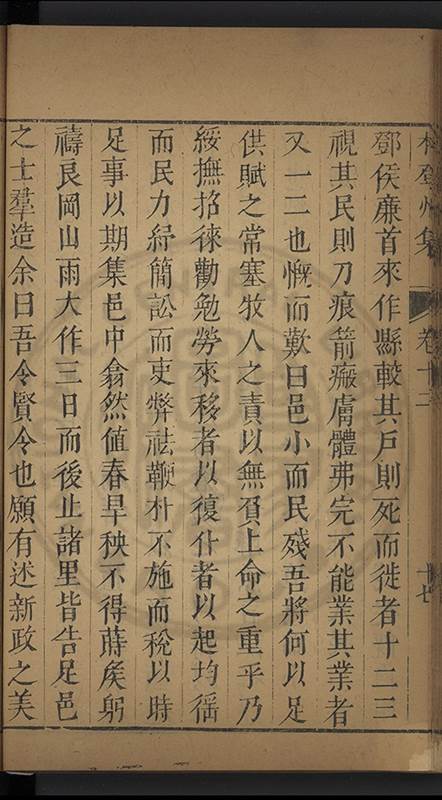 林登州集 卷十三 十七
鄧侯廉首來作縣較其戶則死而徙者十二三
視其民則刀痕箭瘢膚體弗完不能業其業者
又一二也慨而歎曰邑小而民殘吾將何以足
供賦之常塞牧人之責以無負上命之重乎乃
綏撫招徠勸勉勞來移者以復仆者以起均徭
而民力紓簡訟而吏弊祛鞭朴不施而稅以時
足事以期集邑中翕然値春旱秧不得蒔矦躬
禱艮岡山雨大作三日而後止諸里皆告足邑
之士羣造余曰吾令賢令也願有述新政之美